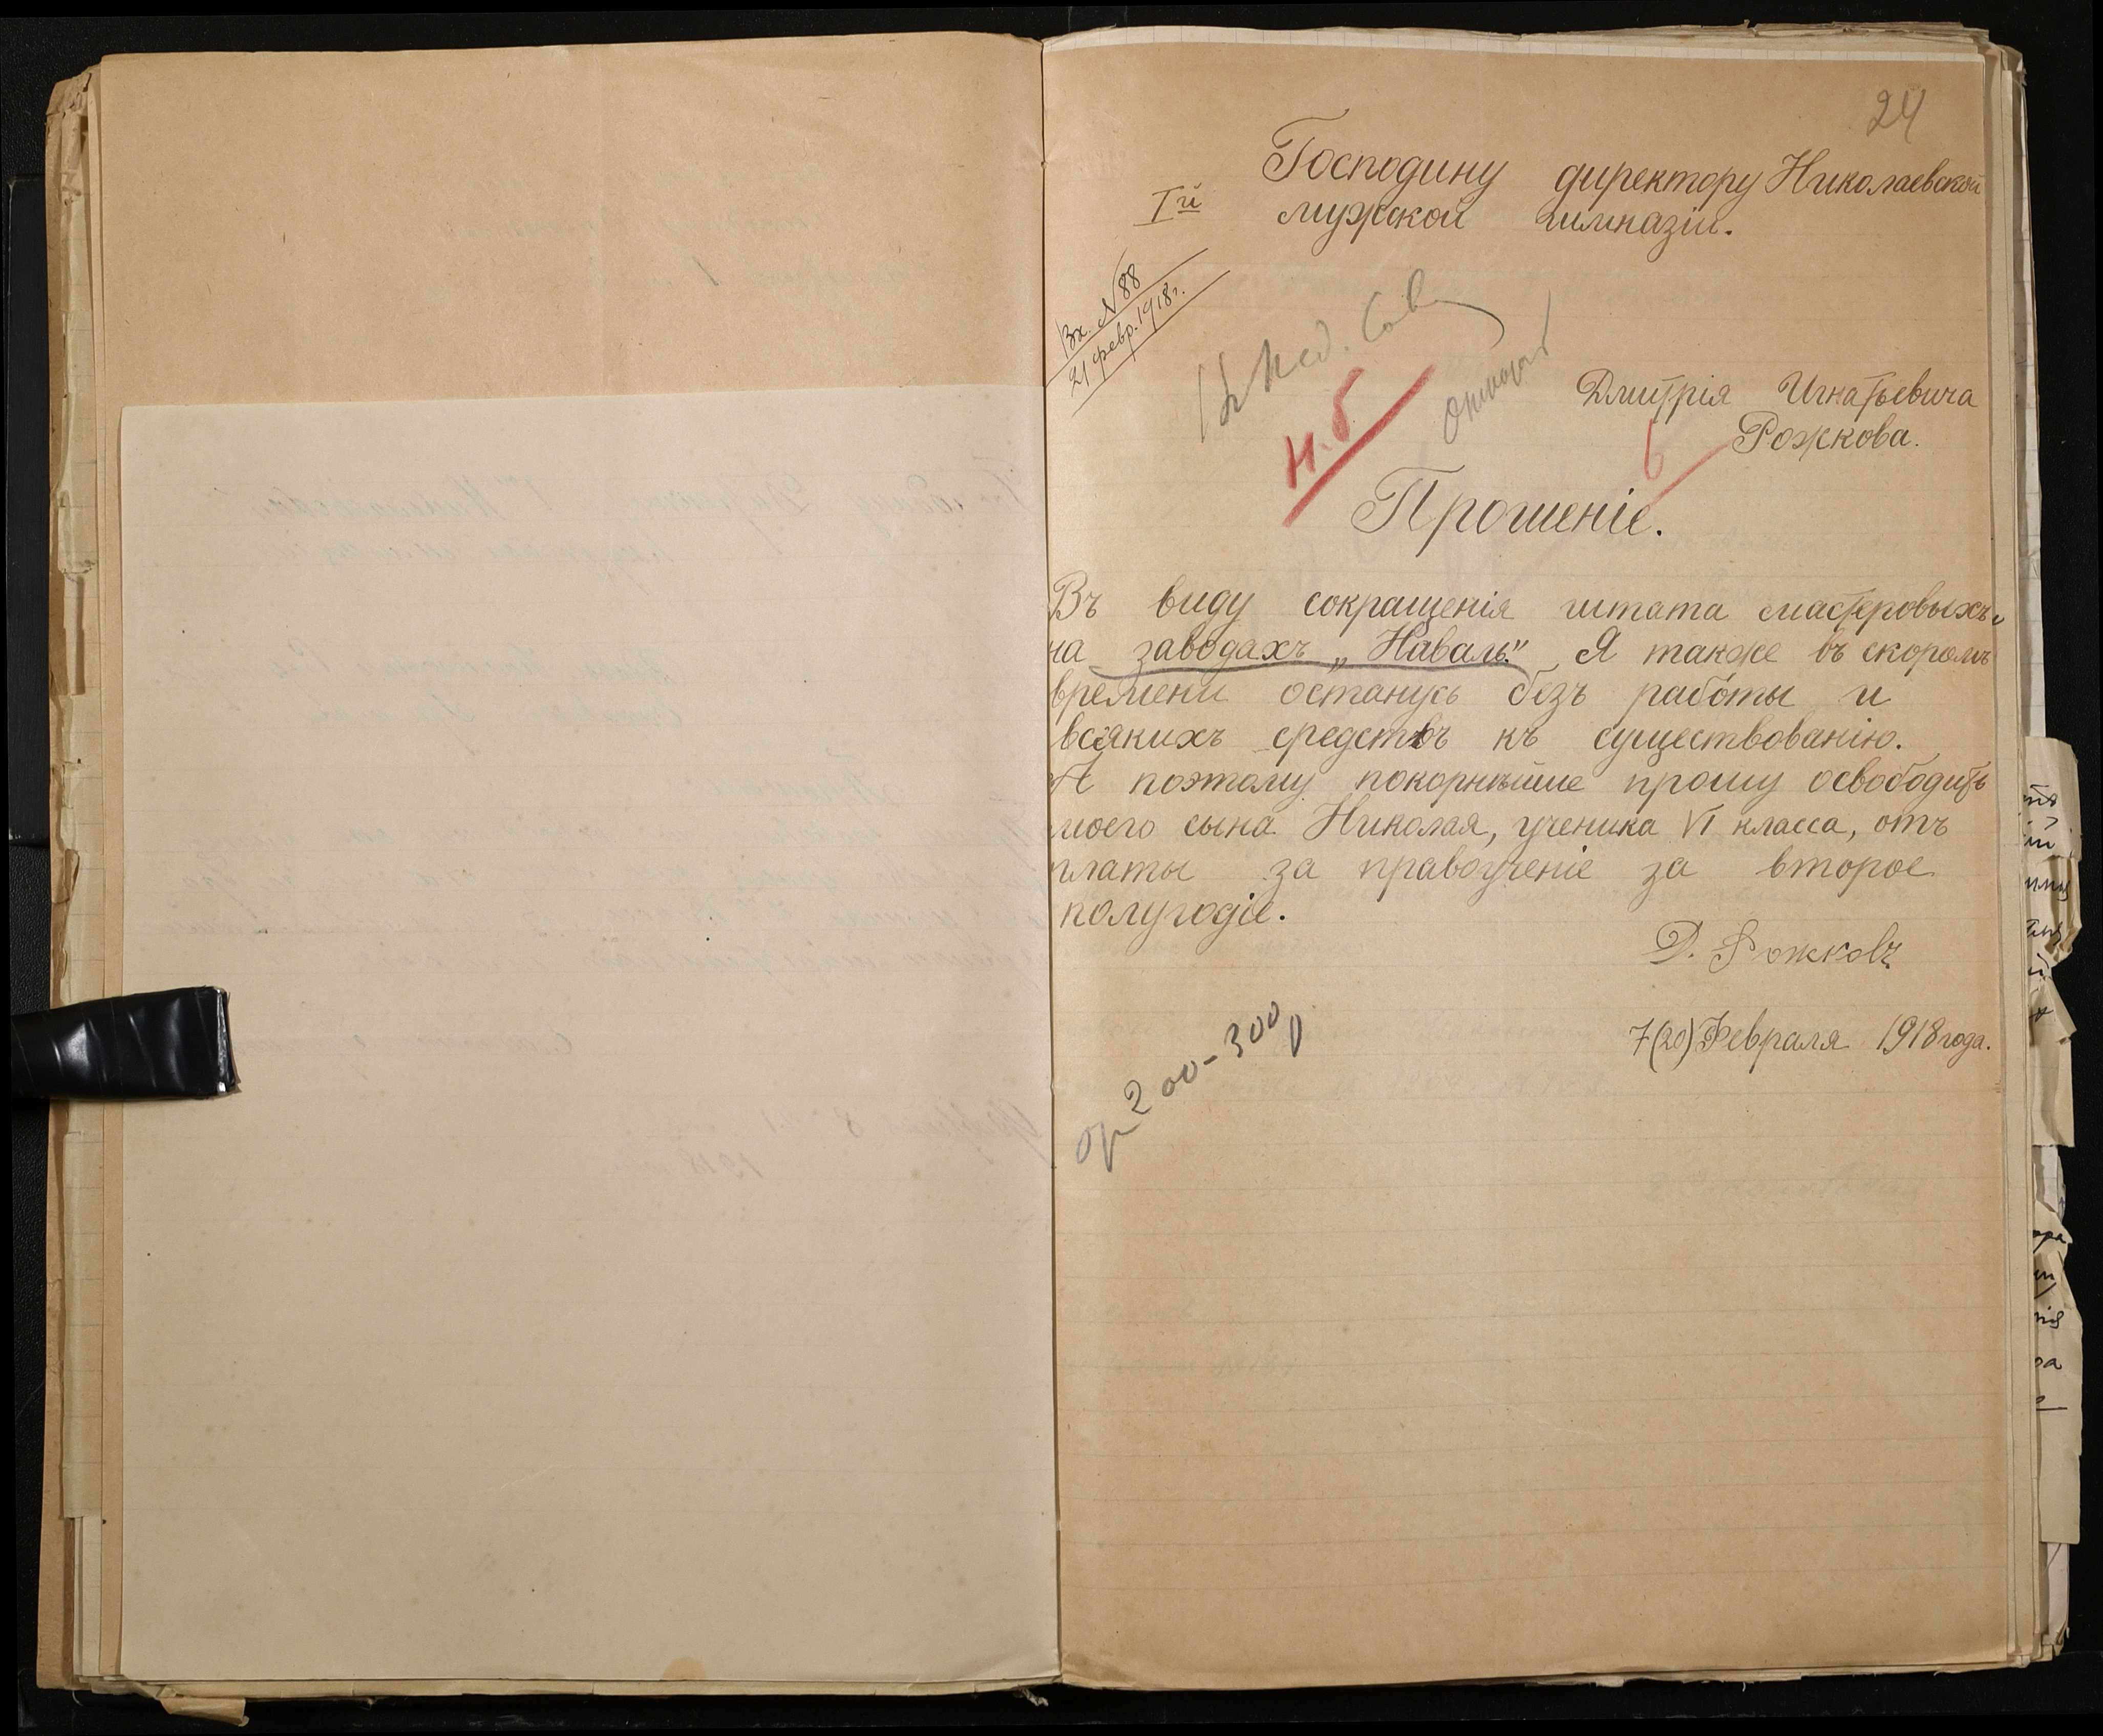 24
Господину директору Николаевской
Iй мужской гимназіи.
Вх. N 88
21 февр. 1918 г.
Дмитрія Игнатьевича
Рожкова.
Н.б
6
Прошеніе.
Въ виду сокращенія штата мастеровыхъ
на заводахъ „Наваль" Я также въ скоромъ
времени останусь безъ работы и
всякихъ средствъ къ существованію.
А поэтому покорнѣйше прошу освободить
моего сына Николая, ученика VI класса, отъ
платы за правоученіе за второе
полугодіе.
Д. Рожковъ
7(20) Февраля 1918 года.
200-300 р